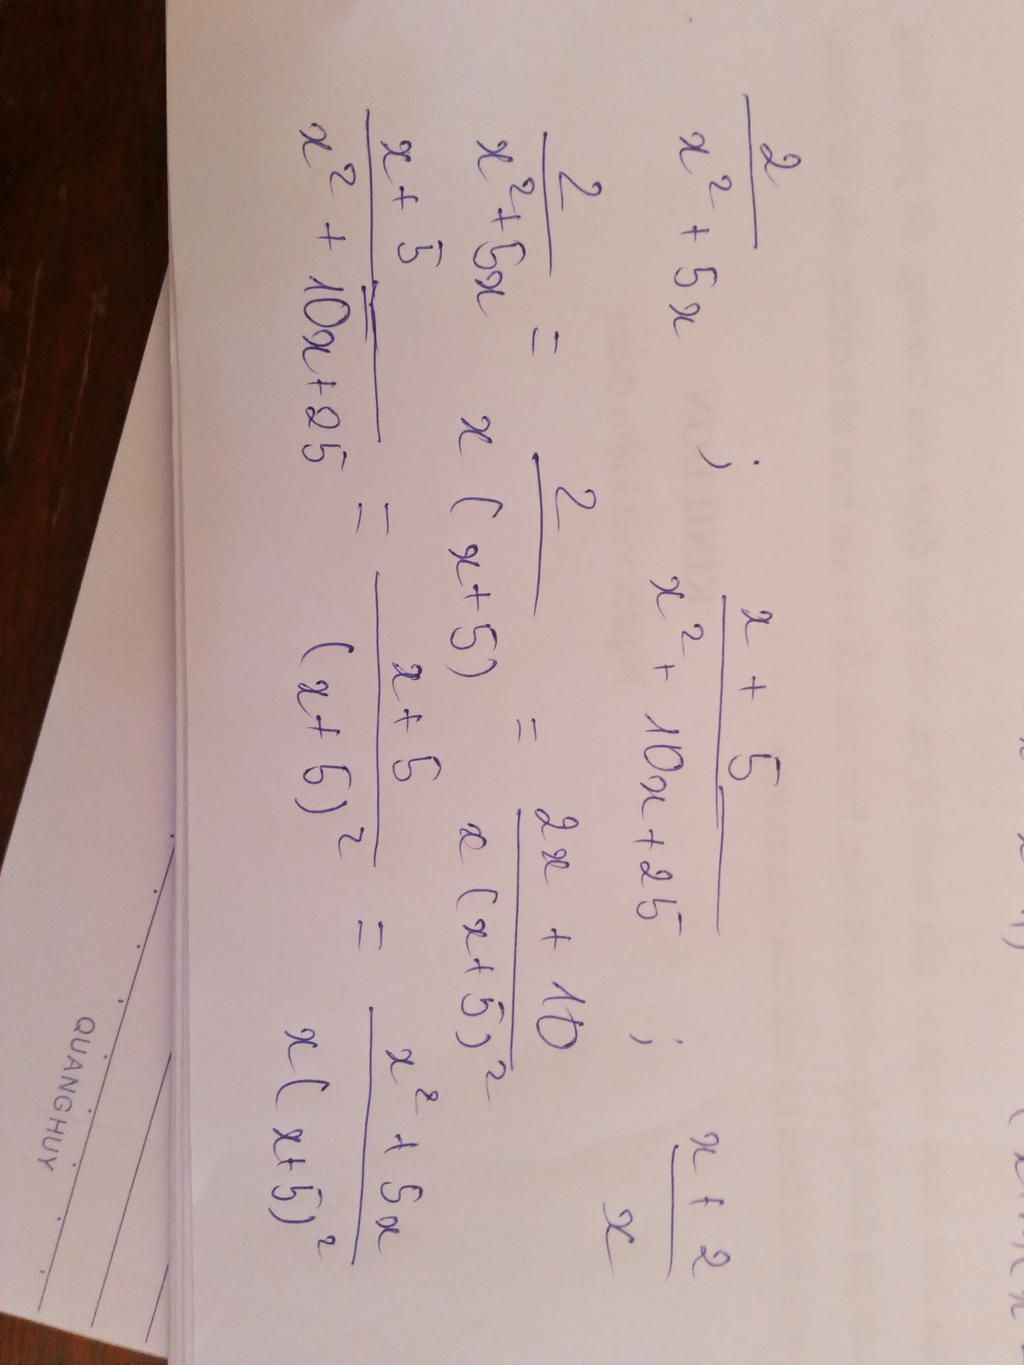 2/(x² + 5x) ; (x + 5)/(x² + 10x + 25) ; (x + 2)/x
2/(x² + 5x) = 2/(x(x + 5)) = (2x + 10)/(x(x + 5)²)
(x + 5)/(x² + 10x + 25) = (x + 5)/(x + 5)² = (x² + 5x)/(x(x + 5)²)
QUANGHUY